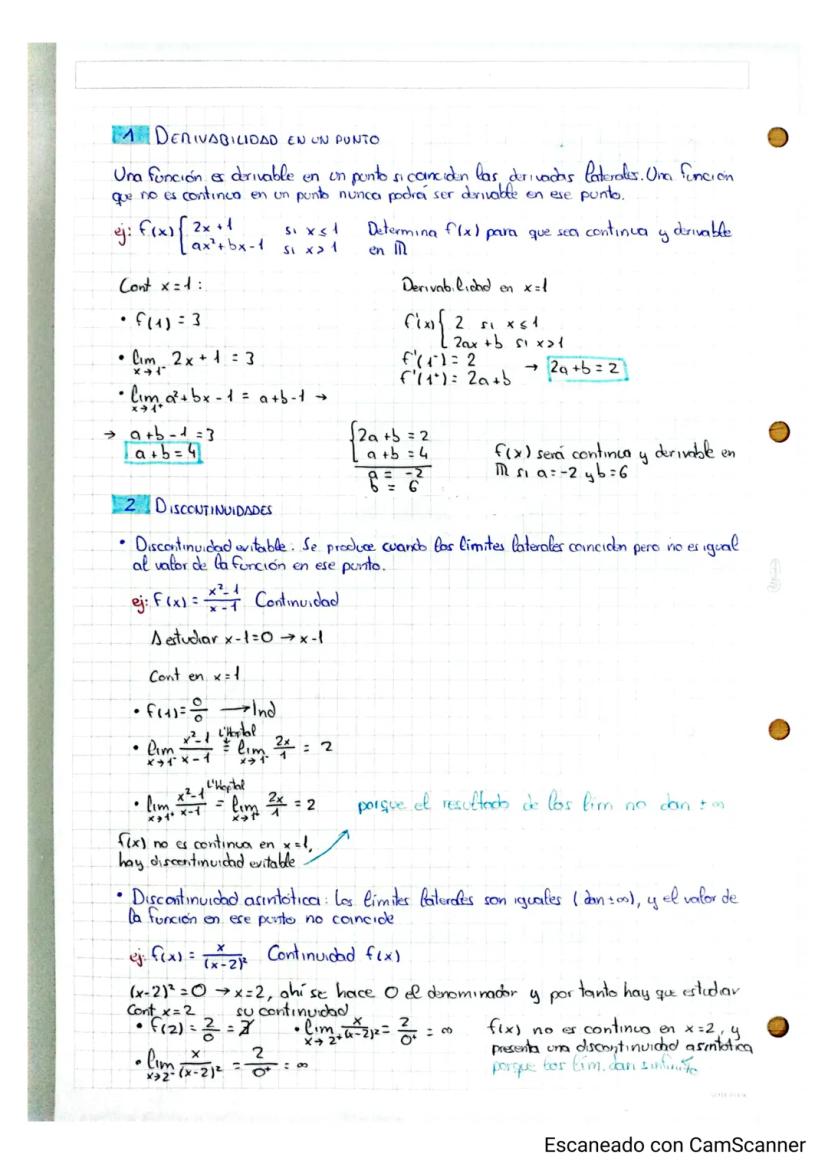 1 DERIVABILIDAD EN UN PUNTO
Una función es derivable en un punto si coinciden las derivadas laterales. Una función
que no es continua en un punto nunca podrá ser derivable en ese punto.
ej: f(x) { 2x+1 si x ≤ 1 Determina f(x) para que sea continua y derivable
ax²+bx-1 si x > 1 en ℝ
Cont x=1:
• f(1) = 3
• lim x→1⁻ 2x+1 = 3
• lim x→1⁺ a²+bx-1 = a+b-1 →
→ a+b-1=3
a+b=4
Derivabilidad en x=1
f'(x) { 2 si x ≤ 1
2ax+b si x>1
f'(1⁻) = 2
f'(1⁺) = 2a+b → 2a+b=2
{ 2a+b=2
a+b=4
a = -2
b = 6
f(x) será continua y derivable en
ℝ si a=-2 y b=6
2 DISCONTINUIDADES
• Discontinuidad evitable: Se produce cuando los límites laterales coinciden pero no es igual
al valor de la función en ese punto.
ej: f(x) = x²-1/x-1 Continuidad
A estudiar x-1=0 → x-1
Cont en x=1
• f(1) = 0/0 → Ind
• lim x→1⁻ x²-1/x-1 L'Hoptal = lim x→1⁻ 2x/1 = 2
• lim x→1⁺ x²-1/x-1 L'Hoptal = lim x→1⁺ 2x/1 = 2
porque el resultado de los lim no dan ±∞
f(x) no es continua en x=1,
hay discontinuidad evitable
• Discontinuidad asintótica: Los límites laterales son iguales (dan ±∞), y el valor de
la función en ese punto no coincide
ej: f(x) = x/(x-2)² Continuidad f(x)
(x-2)²=0 → x=2, ahí se hace 0 el denominador y por tanto hay que estudiar
su continuidad
Cont x=2
• f(2) = 2/0 = ∄
• lim x→2⁺ x/(x-2)² = 2/0⁺ = ∞
• lim x→2⁻ x/(x-2)² = 2/0⁺ = ∞
f(x) no es continua en x=2, y
presenta una discontinuidad asintótica
porque los lim. dan
Escaneado con CamScanner